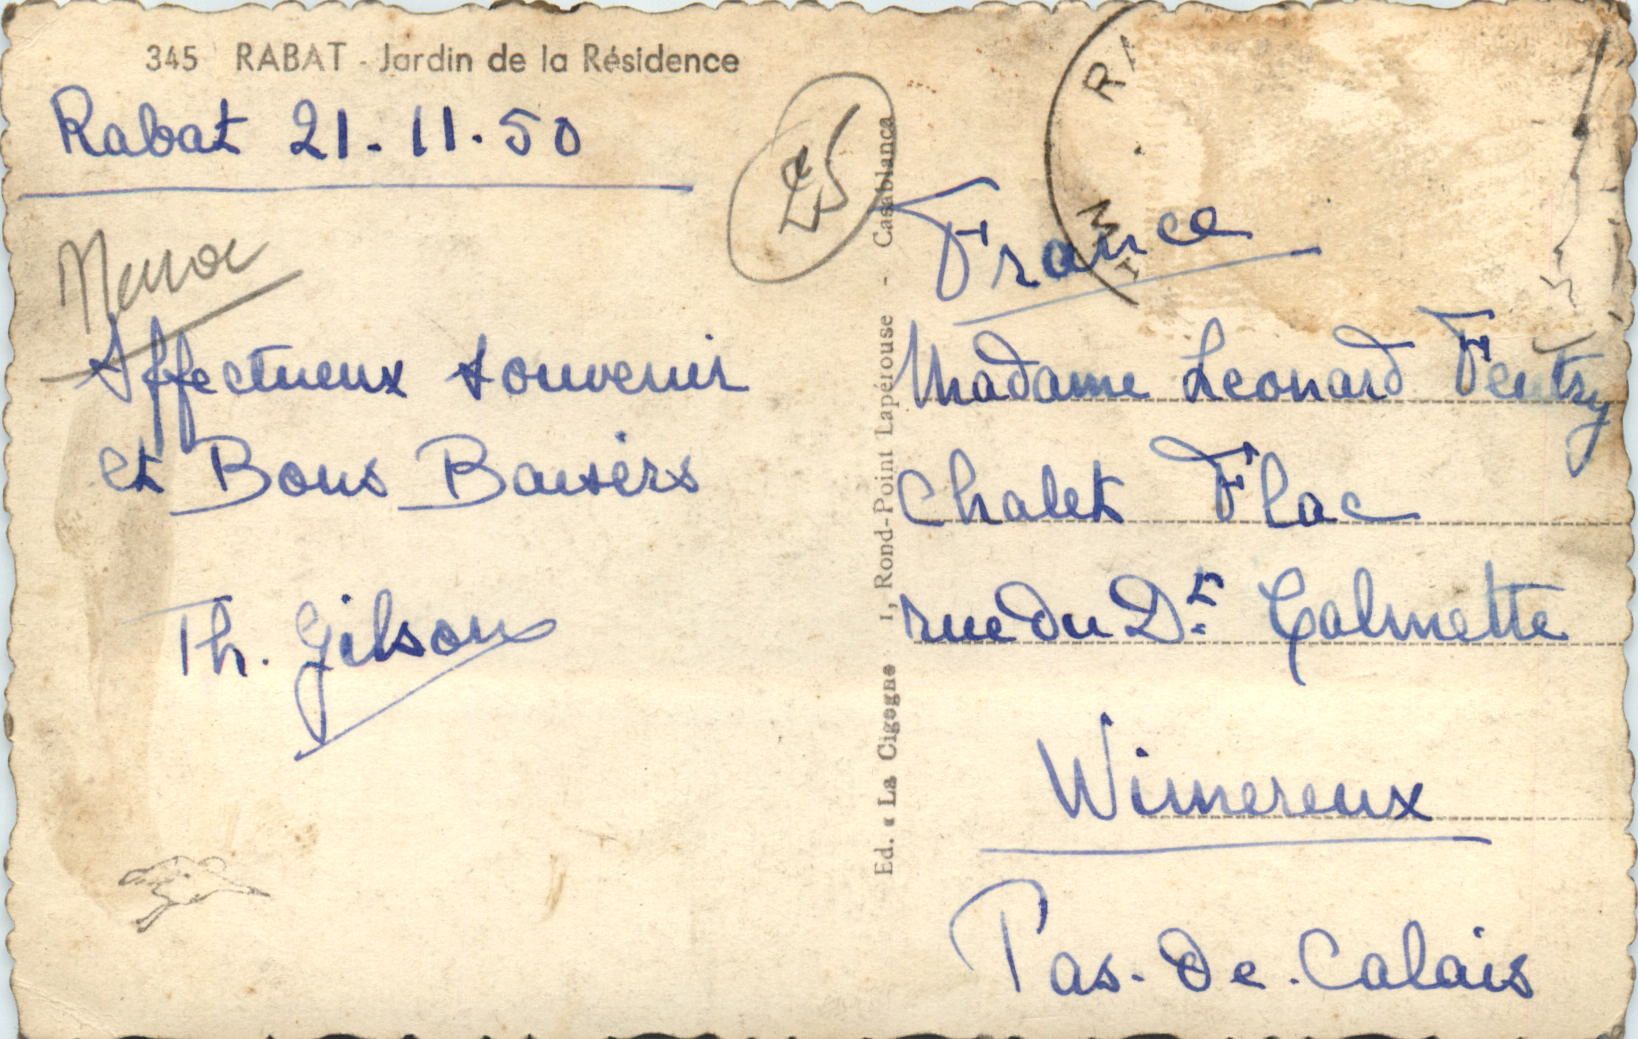 345 RABAT - Jardin de la Résidence
Rabat 21-11.50
Maroc
Affectueux souvenir
et Bons Baisers
Th. Gilson
Ed. « La Cigogne 1, Rond-Point Lapérouse - Casablanca
RA
France
Madame Leonard Feutry
Chalet Flac
rue du Dr Calmette
Wimereux
Pas-de-Calais